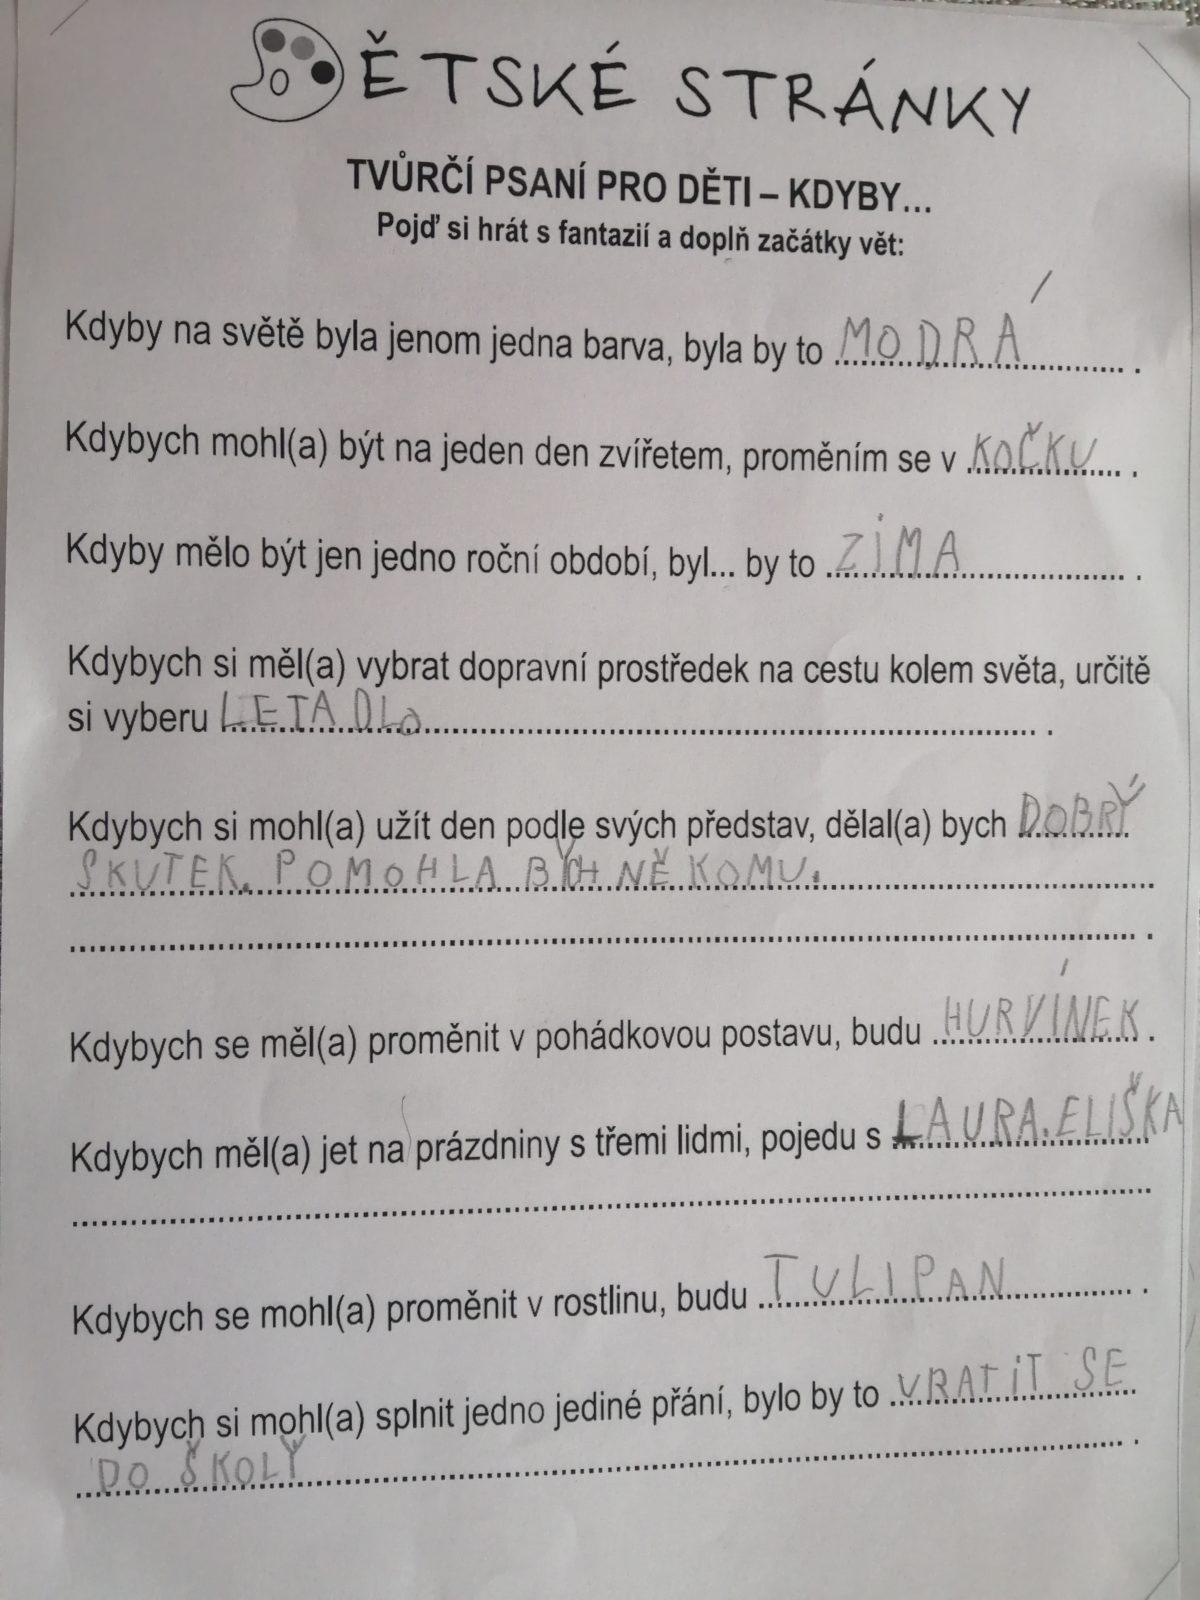 DĚTSKÉ STRÁNKY
TVŮRČÍ PSANÍ PRO DĚTI – KDYBY...
Pojď si hrát s fantazií a doplň začátky vět:
Kdyby na světě byla jenom jedna barva, byla by to MODRÁ .
Kdybych mohl(a) být na jeden den zvířetem, proměním se v KOČKU .
Kdyby mělo být jen jedno roční období, byl... by to ZIMA .
Kdybych si měl(a) vybrat dopravní prostředek na cestu kolem světa, určitě
si vyberu LETADLO .
Kdybych si mohl(a) užít den podle svých představ, dělal(a) bych DOBRÝ
SKUTEK. POMOHLA BYCH NĚKOMU.
.
Kdybych se měl(a) proměnit v pohádkovou postavu, budu HURVÍNEK .
Kdybych měl(a) jet na prázdniny s třemi lidmi, pojedu s LAURA. ELIŠKA
Kdybych se mohl(a) proměnit v rostlinu, budu TULIPAN .
Kdybych si mohl(a) splnit jedno jediné přání, bylo by to VRATIT SE
DO ŠKOLY .